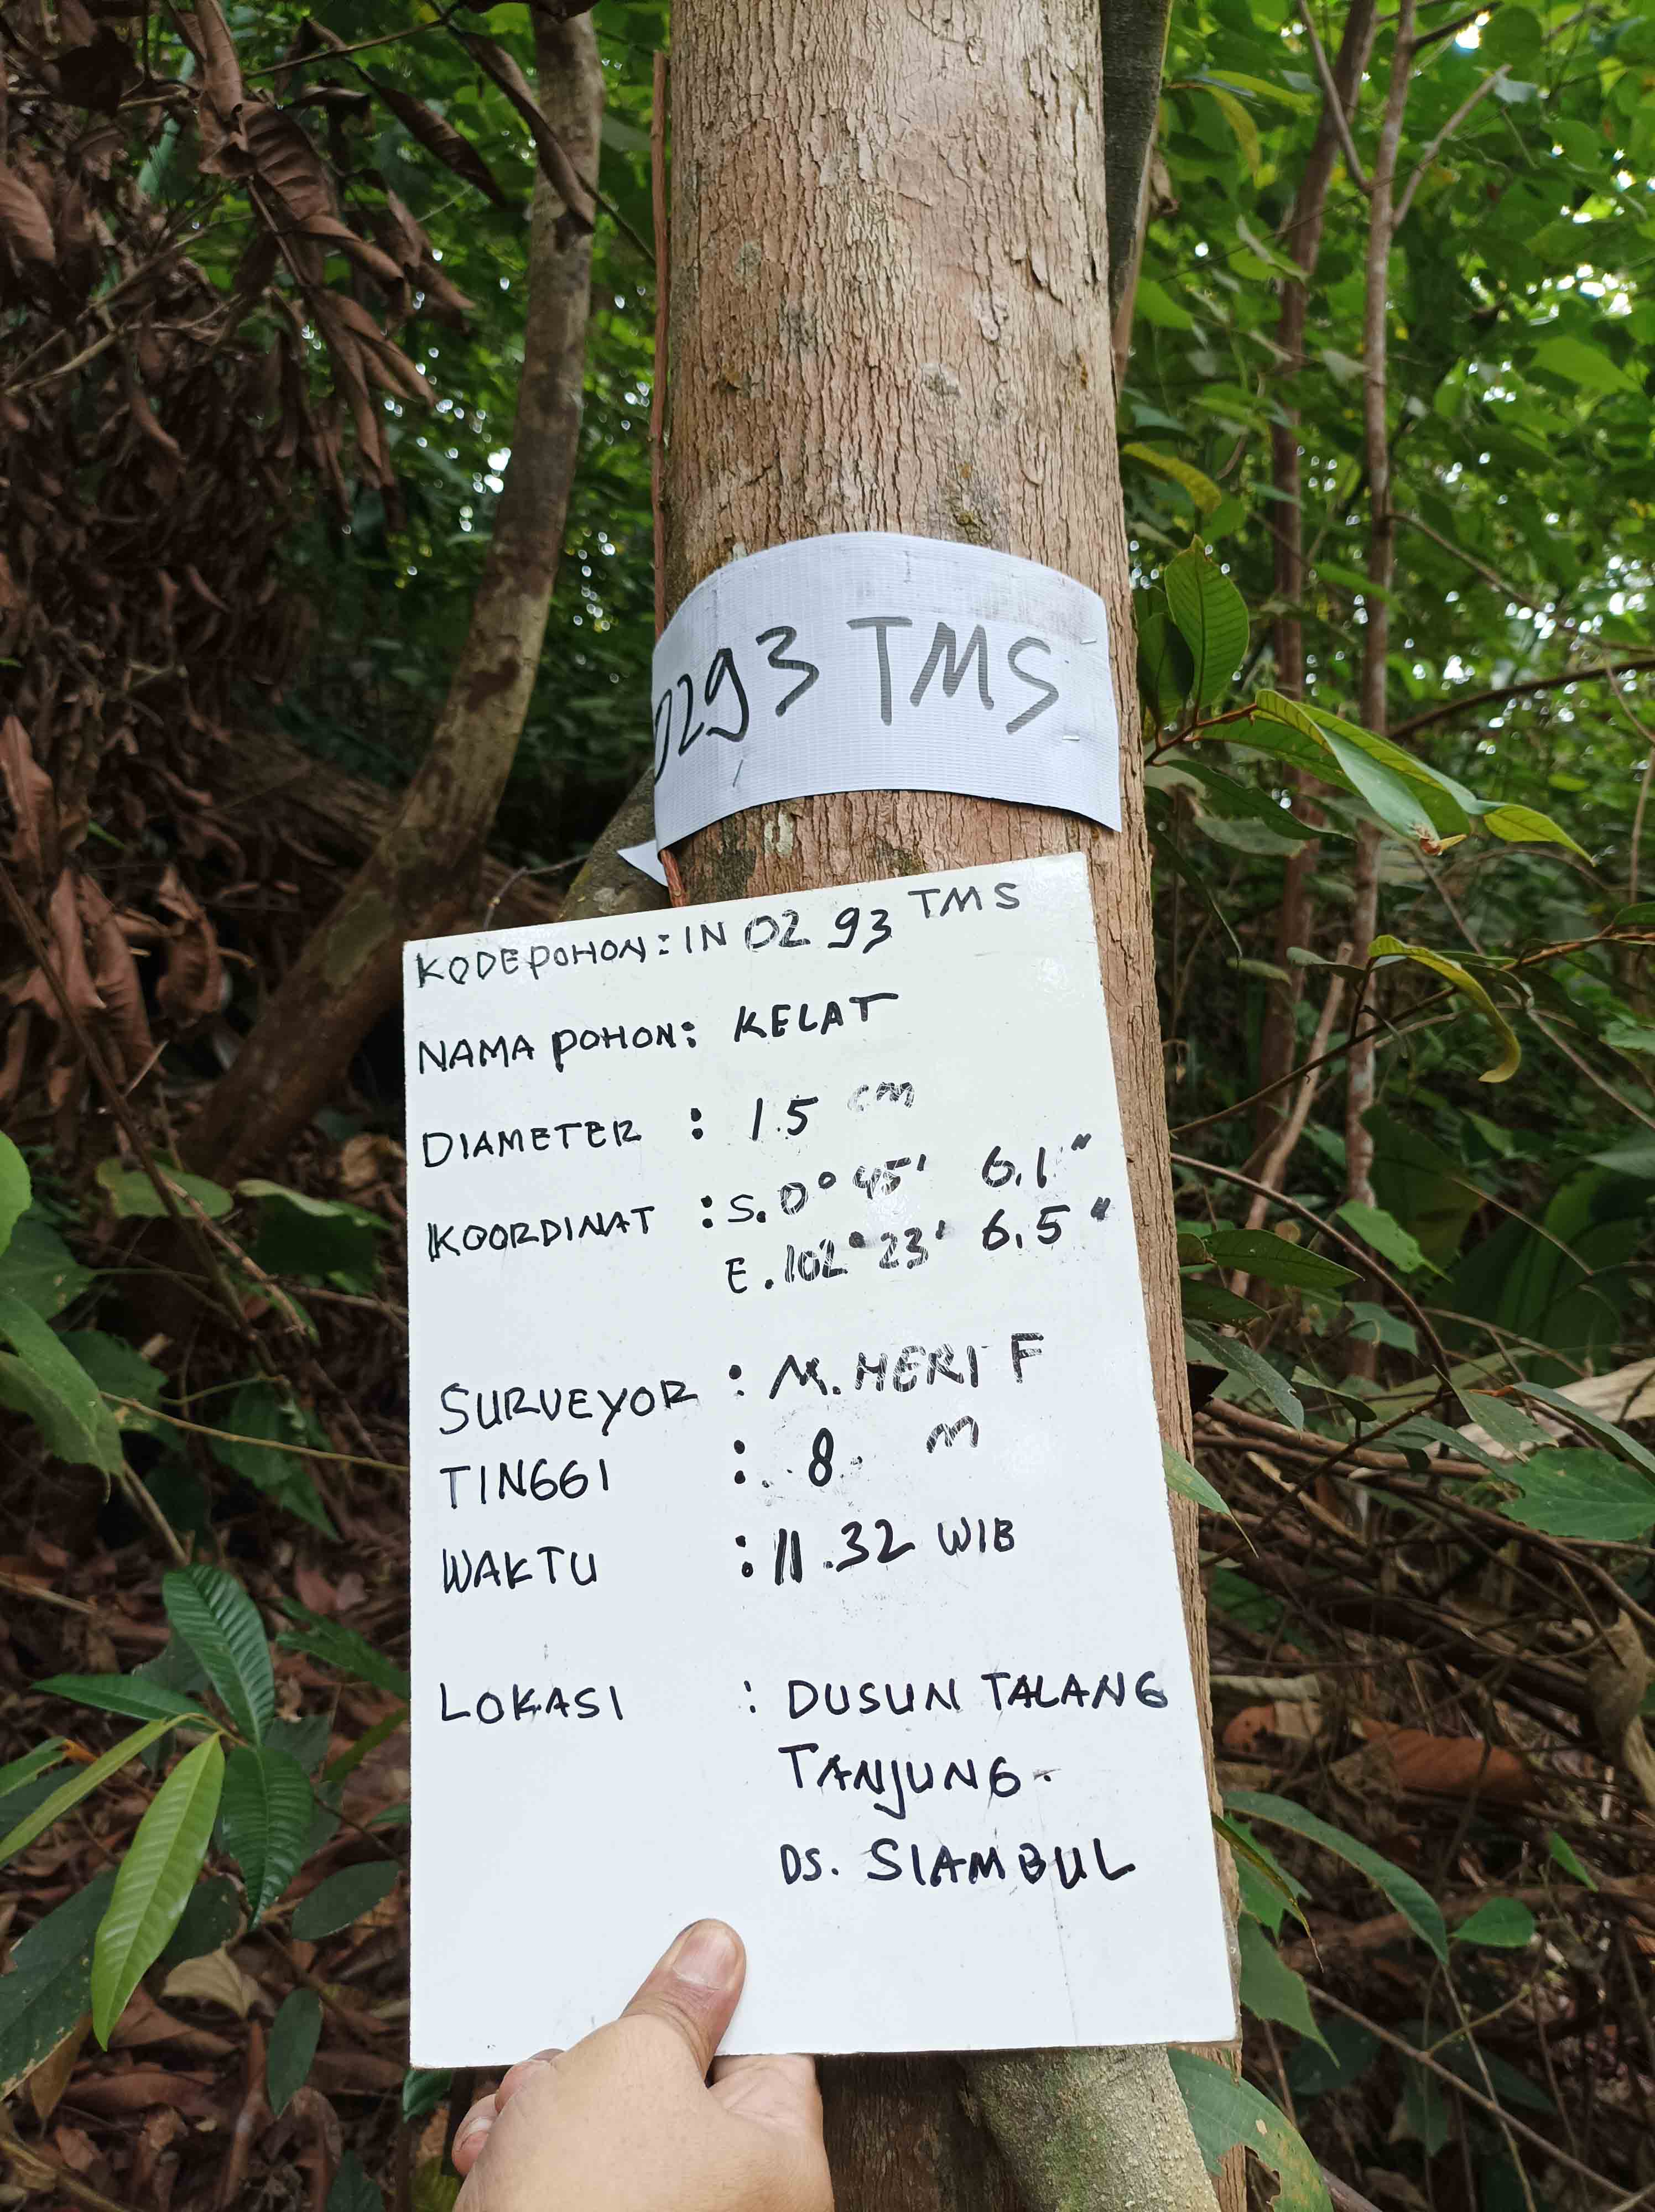 0293 TMS
KODE POHON : IN 02 93 TMS
NAMA POHON : KELAT
DIAMETER : 15 cm
KOORDINAT : S. 0° 45' 6.1"
E. 102° 23' 6.5"
SURVEYOR : M. HERI F
TINGGI : 8 m
WAKTU : 11.32 WIB
LOKASI : DUSUN TALANG
TANJUNG.
DS. SIAMBUL